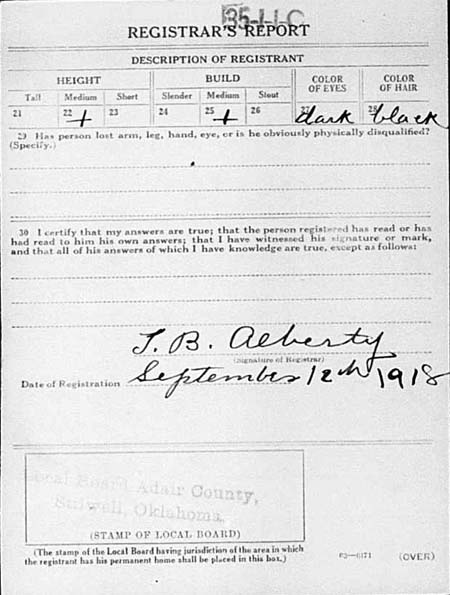 35-LLC
REGISTRAR'S REPORT
DESCRIPTION OF REGISTRANT
HEIGHT BUILD COLOR OF EYES COLOR OF HAIR
Tall Medium Short Slender Medium Stout
21 22 + 23 24 25 + 26 27 dark 28 black
29 Has person lost arm, leg, hand, eye, or is he obviously physically disqualified?
(Specify.)
30 I certify that my answers are true; that the person registered has read or has
had read to him his own answers; that I have witnessed his signature or mark,
and that all of his answers of which I have knowledge are true, except as follows:
T. B. Alberty
(Signature of Registrar)
Date of Registration September 12th 1918
Local Board Adair County,
Stilwell, Oklahoma.
(STAMP OF LOCAL BOARD)
(The stamp of the Local Board having jurisdiction of the area in which
the registrant has his permanent home shall be placed in this box.)
03—6171 (OVER)